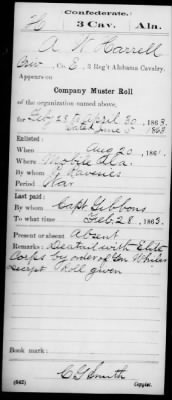 Confederate.
H 3 Cav. Ala.
A W Harrell
Co. E, 3 Reg't Alabama Cavalry.
Appears on
Company Muster Roll
of the organization named above,
for Feby 28 to April 30, 1863.
Dated June 5 1863
Enlisted:
When Aug 20, 1861.
Where Mobile Ala.
By whom
Period War
Last paid:
By whom Capt Gibbons
To what time Feb. 28, 1863.
Present or absent Absent
Remarks: Detail with Elite
Corps by order of Gen
Roll given
Book mark:
(642) C G Smith
Copyist.